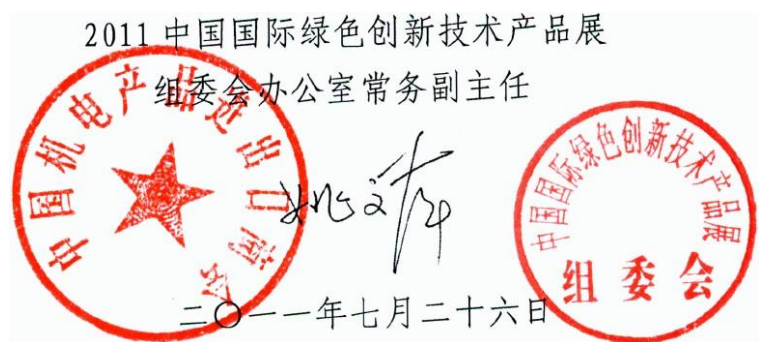 2011中国国际绿色创新技术产品展
组委会办公室常务副主任
中国机电产品进出口商会
姚文萍
中国国际绿色创新技术产品展
组委会
二〇一一年七月二十六日